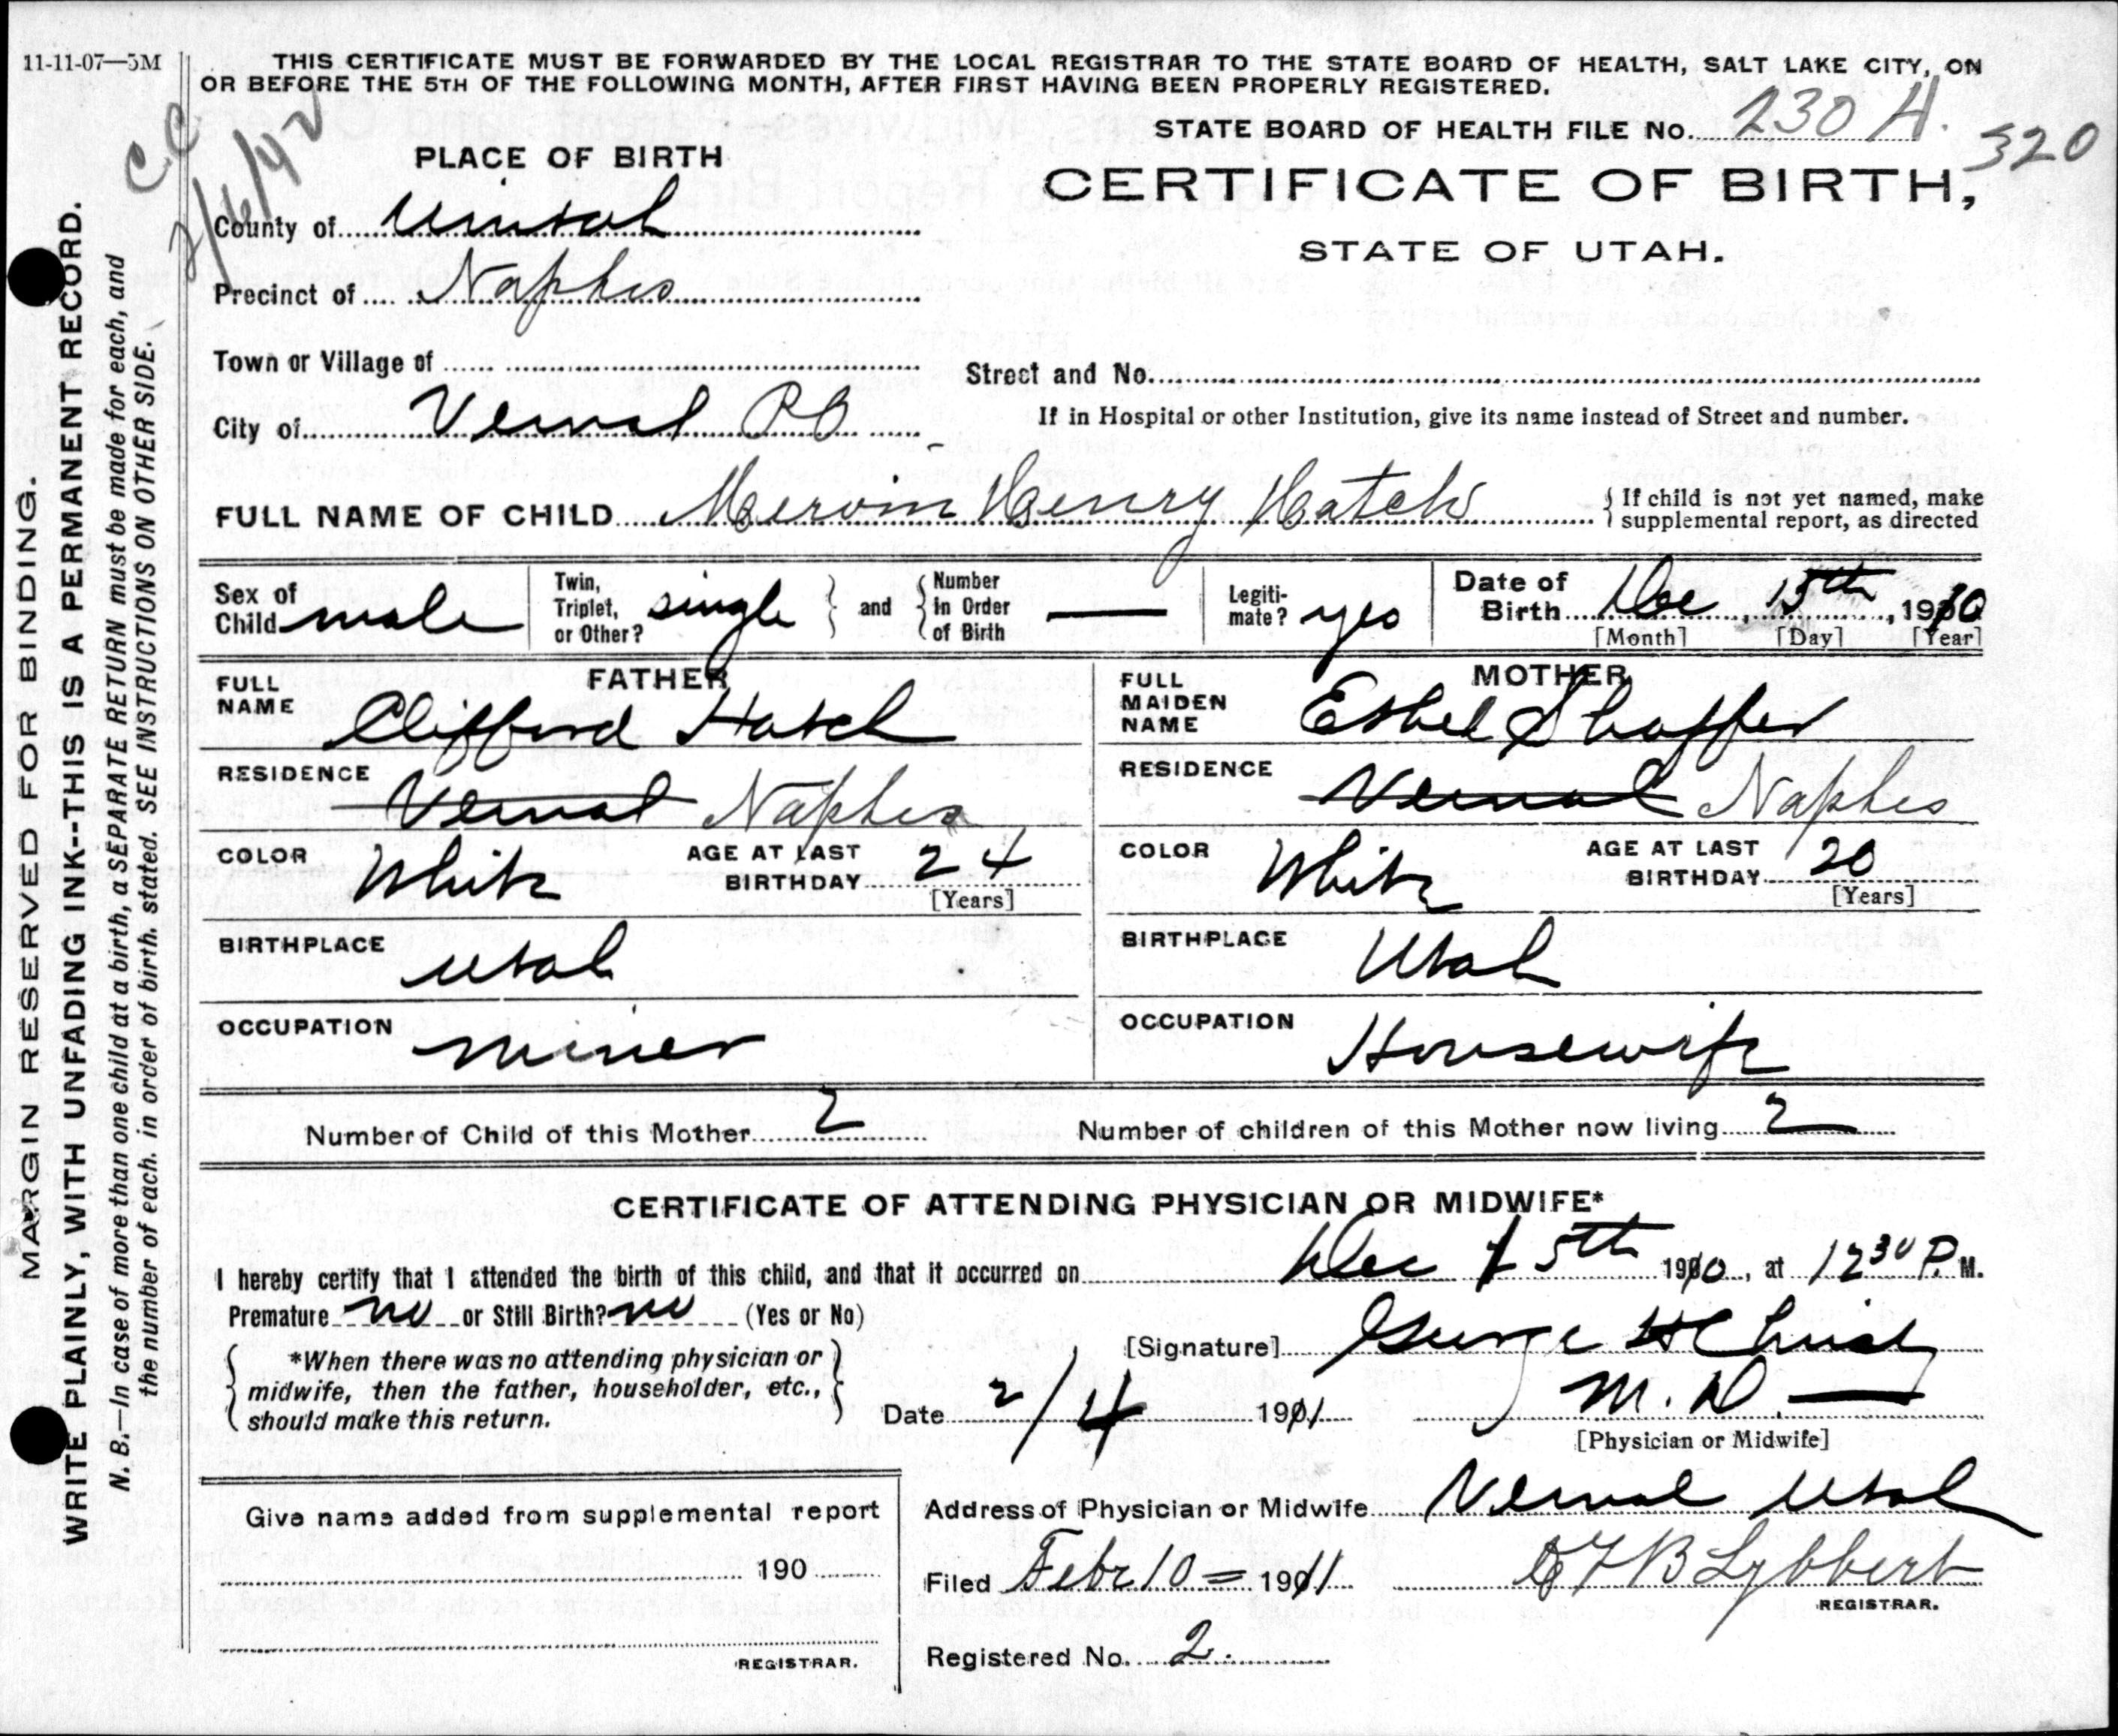 11-11-07—5M
THIS CERTIFICATE MUST BE FORWARDED BY THE LOCAL REGISTRAR TO THE STATE BOARD OF HEALTH, SALT LAKE CITY, ON
OR BEFORE THE 5TH OF THE FOLLOWING MONTH, AFTER FIRST HAVING BEEN PROPERLY REGISTERED.
STATE BOARD OF HEALTH FILE No. 230 A. 320
CC
2/6/42
PLACE OF BIRTH
CERTIFICATE OF BIRTH,
STATE OF UTAH.
County of Uintah
Precinct of Naples
Town or Village of
Street and No.
City of Vernal PO
If in Hospital or other Institution, give its name instead of Street and number.
FULL NAME OF CHILD Mervin Henry Hatch
{ If child is not yet named, make
supplemental report, as directed
Sex of Child male
Twin, Triplet, or Other? single } and { Number in Order of Birth —
Legitimate? yes
Date of Birth Dec 15th, 1910
[Month] [Day] [Year]
FATHER
FULL NAME Clifford Hatch
RESIDENCE Vernal Naples
COLOR White AGE AT LAST BIRTHDAY 24 [Years]
BIRTHPLACE Utah
OCCUPATION miner
MOTHER
FULL MAIDEN NAME Ethel Shaffer
RESIDENCE Vernal Naples
COLOR White AGE AT LAST BIRTHDAY 20 [Years]
BIRTHPLACE Utah
OCCUPATION Housewife
Number of Child of this Mother 2 Number of children of this Mother now living 2
CERTIFICATE OF ATTENDING PHYSICIAN OR MIDWIFE*
I hereby certify that I attended the birth of this child, and that it occurred on Dec 15th 1910, at 12 30 P. M.
Premature no or Still Birth? no (Yes or No)
{ *When there was no attending physician or }
midwife, then the father, householder, etc.,
should make this return.
[Signature] George H
M.D. —
Date 2/4 1911
[Physician or Midwife]
Address of Physician or Midwife Vernal Utah
Give name added from supplemental report
190
REGISTRAR.
Filed Febr 10 = 1911 F B Lybbert
REGISTRAR.
Registered No. 2.
MARGIN RESERVED FOR BINDING.
WRITE PLAINLY, WITH UNFADING INK--THIS IS A PERMANENT RECORD.
N. B.—In case of more than one child at a birth, a SEPARATE RETURN must be made for each, and
the number of each, in order of birth, stated. SEE INSTRUCTIONS ON OTHER SIDE.